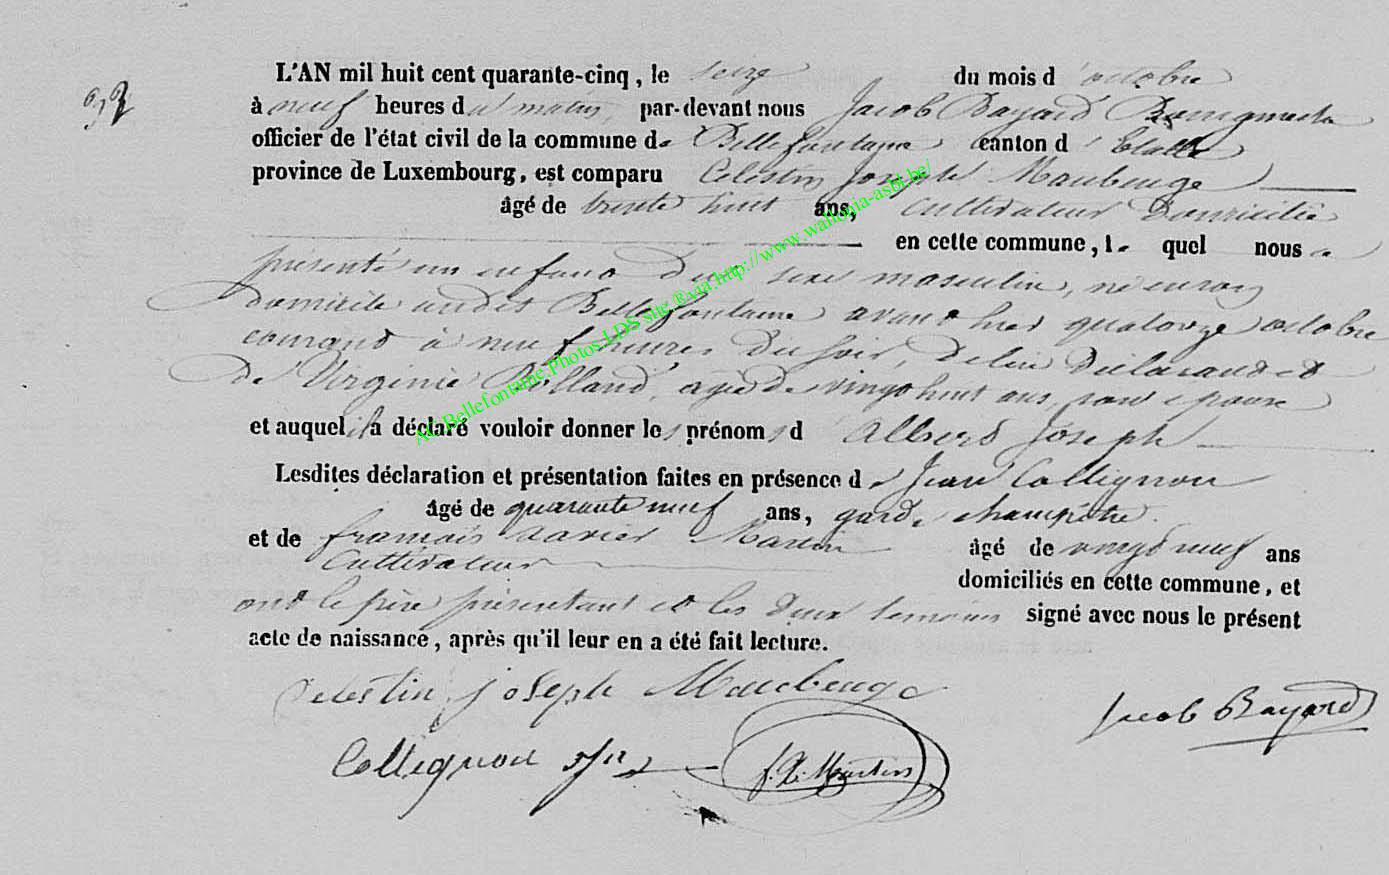 L'AN mil huit cent quarante-cinq, le seize du mois d'octobre
à neuf heures du matin, par-devant nous Jacob Bayard Bourgmestre
officier de l'état civil de la commune de Bellefontaine canton d'Etalle
province de Luxembourg, est comparu Celestin Joseph Maubeuge
âgé de trente huit ans, cultivateur domicilié
en cette commune, lequel nous a
présenté un enfant du sexe masculin, né en son
domicile audit Bellefontaine avant hier quatorze octobre
courant à neuf heures du soir, de lui déclarant et
de Virginie agée de vingt huit ans, son épouse
et auquel il a déclaré vouloir donner les prénoms d Albert Joseph
Lesdites déclaration et présentation faites en présence de Jean Collignon
âgé de quarante neuf ans, garde champêtre.
et de françois Xavier Martin âgé de vingt neuf ans
Cultivateur domiciliés en cette commune, et
ont le père présentant et les deux temoins signé avec nous le présent
acte de naissance, après qu'il leur en a été fait lecture.
Celestin joseph Maubeuge
Jacob Bayard
Collignon
f. X. Martin
AC Bellefontaine.Photos LDS site ®via http://www.wallonia-asbl.be/